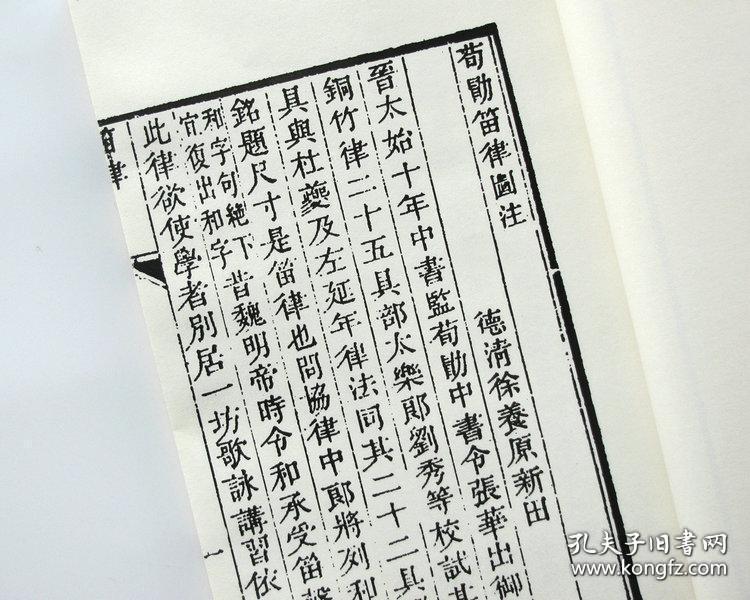 荀勖笛律圖注
德清徐養原新田
晉太始十年中書監荀勖中書令張華出御
銅竹律二十五具部太樂郎劉秀等校試其
具與杜夔及左延年律法同其二十二具
銘題尺寸是笛律也問協律中郎將列和
和字句絕下
宜復出和字
昔魏明帝時令和承受笛聲
此律欲使學者別居一坊歌詠講習依
笛律
一
孔夫子旧书网
www.kongfz.com